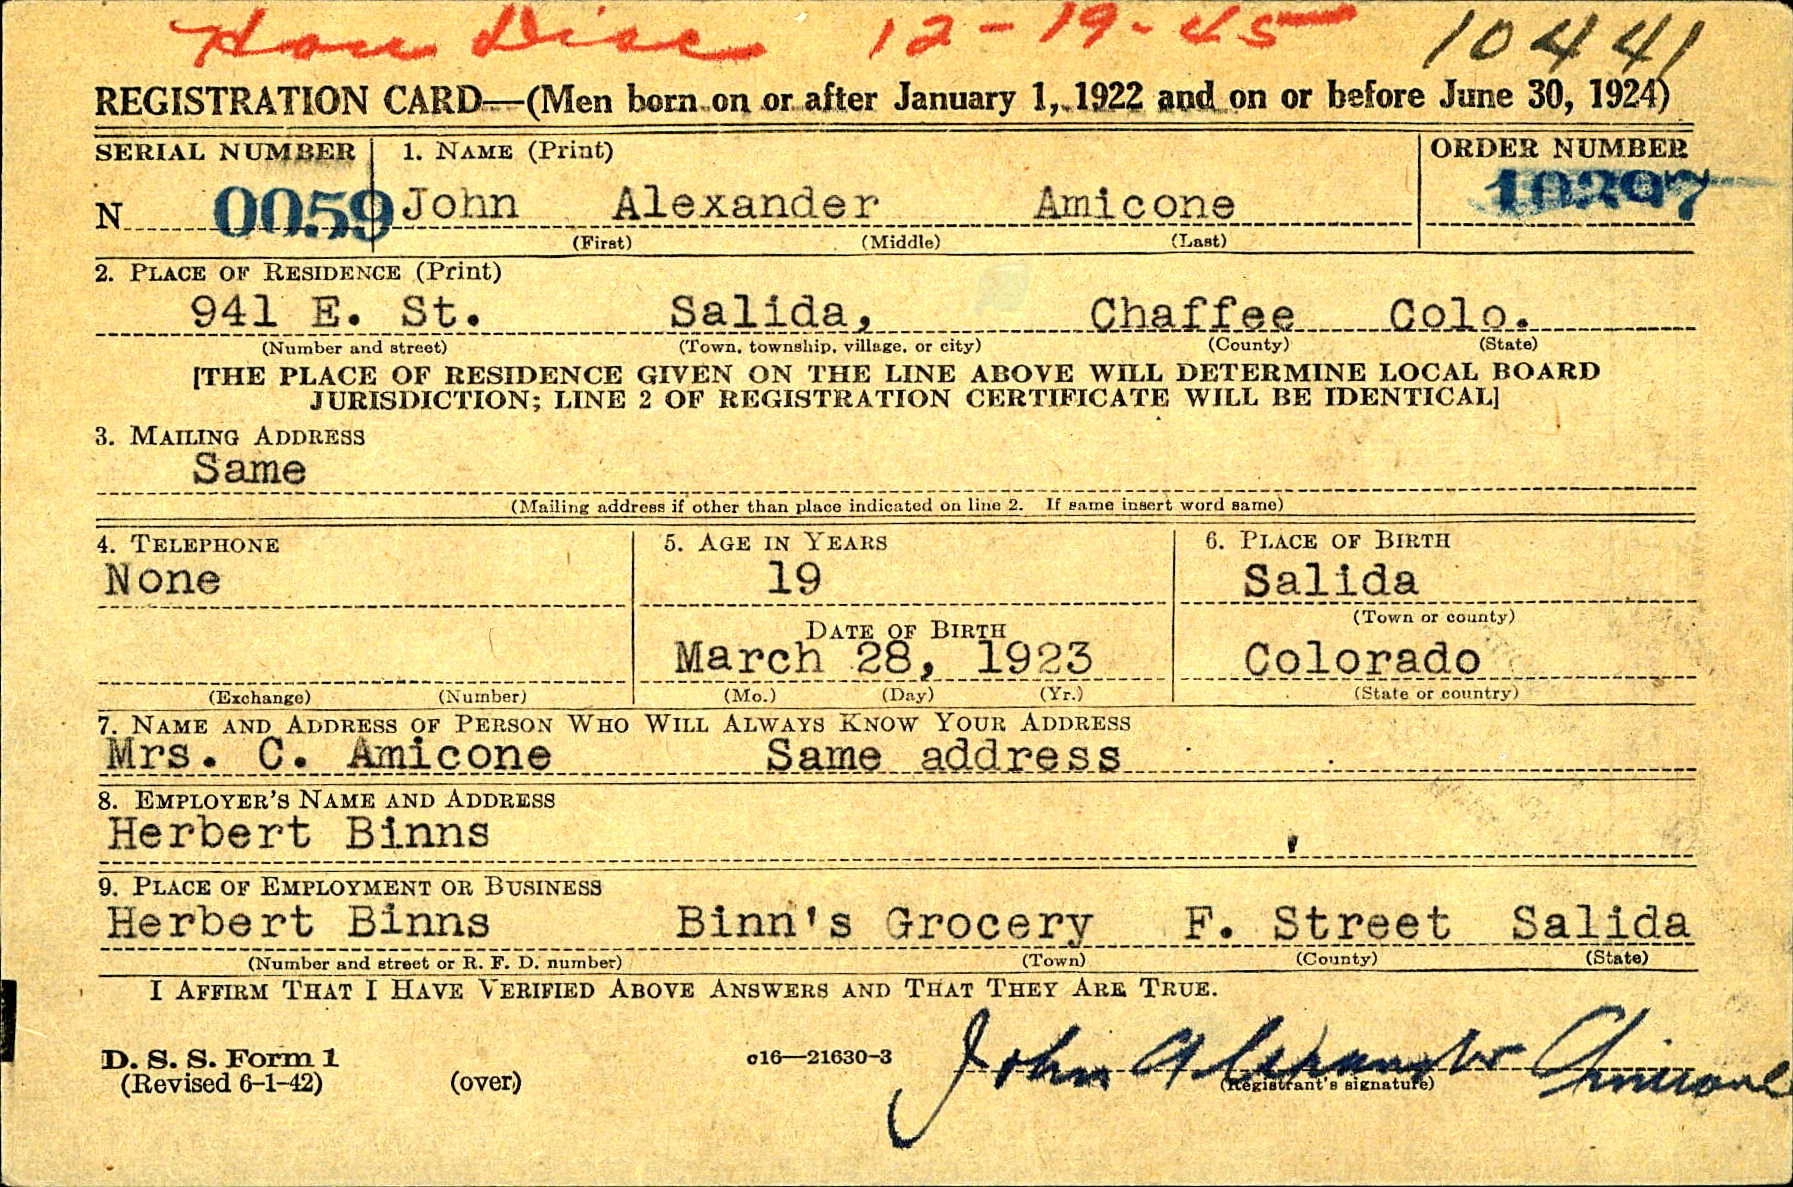 Hon Disc 12-19-45 10441
REGISTRATION CARD—(Men born on or after January 1, 1922 and on or before June 30, 1924)
SERIAL NUMBER 1. NAME (Print) ORDER NUMBER
N 0059 John Alexander Amicone
(First) (Middle) (Last)
2. PLACE OF RESIDENCE (Print)
941 E. St. Salida, Chaffee Colo.
(Number and street) (Town, township, village, or city) (County) (State)
[THE PLACE OF RESIDENCE GIVEN ON THE LINE ABOVE WILL DETERMINE LOCAL BOARD
JURISDICTION; LINE 2 OF REGISTRATION CERTIFICATE WILL BE IDENTICAL]
3. MAILING ADDRESS
Same
(Mailing address if other than place indicated on line 2. If same insert word same)
4. TELEPHONE 5. AGE IN YEARS 6. PLACE OF BIRTH
None 19 Salida
(Town or county)
DATE OF BIRTH
March 28, 1923 Colorado
(Exchange) (Number) (Mo.) (Day) (Yr.) (State or country)
7. NAME AND ADDRESS OF PERSON WHO WILL ALWAYS KNOW YOUR ADDRESS
Mrs. C. Amicone Same address
8. EMPLOYER'S NAME AND ADDRESS
Herbert Binns
9. PLACE OF EMPLOYMENT OR BUSINESS
Herbert Binns Binn's Grocery F. Street Salida
(Number and street or R. F. D. number) (Town) (County) (State)
I AFFIRM THAT I HAVE VERIFIED ABOVE ANSWERS AND THAT THEY ARE TRUE.
John Alexander Amicone
D. S. S. Form 1 c16—21630-3 (Registrant's signature)
(Revised 6-1-42) (over)